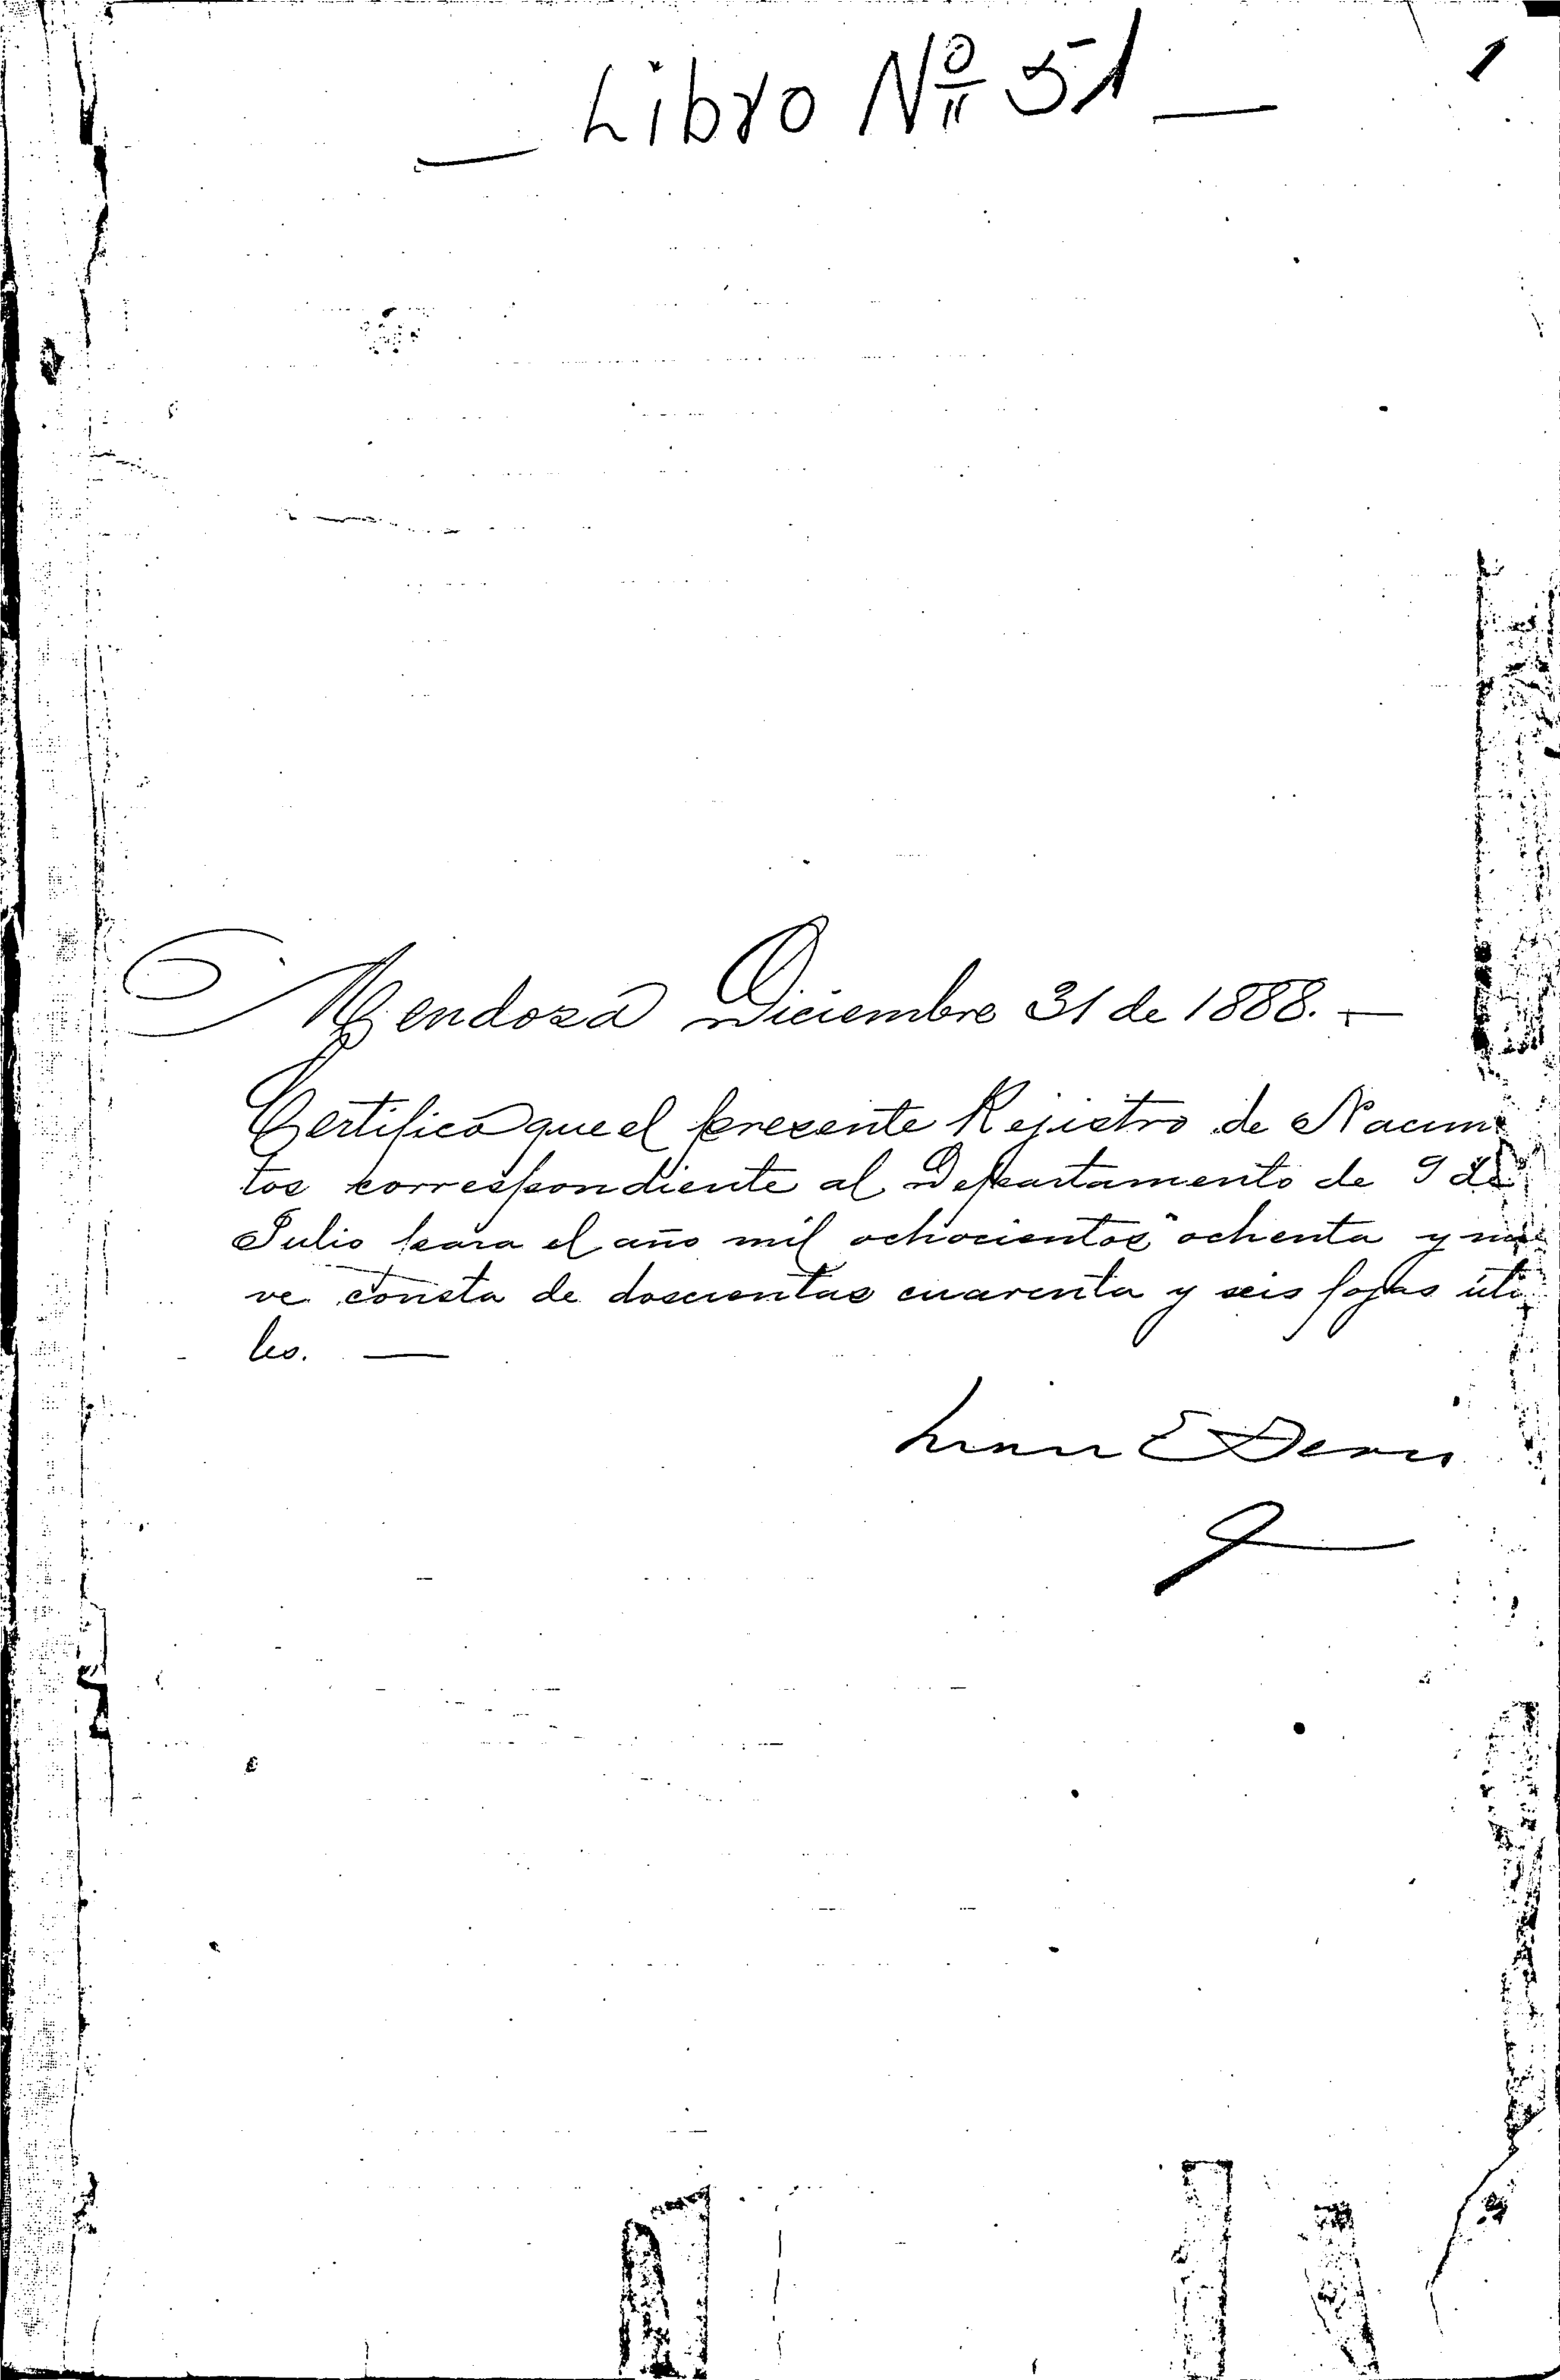 1
— Libro Nº 51 —
Mendoza Diciembre 31 de 1888. —
Certifico que el presente Rejistro de Nacim
tos correspondiente al Departamento de 9 de
Julio para el año mil ochocientos ochenta y nue
ve consta de doscientas cuarenta y seis fojas úti
les. —